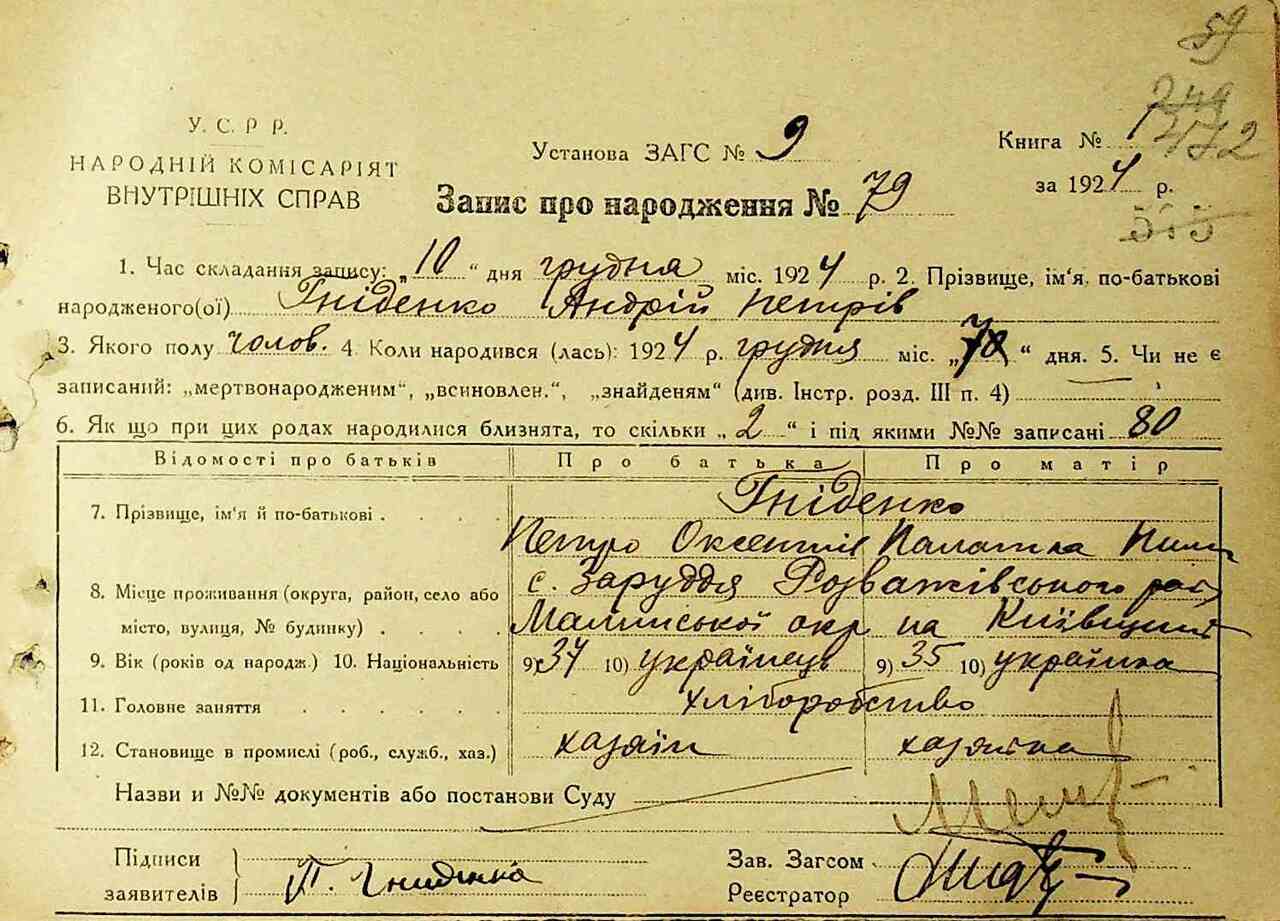 59
249
472
У. С. Р. Р.
НАРОДНІЙ КОМІСАРІЯТ
ВНУТРІШНІХ СПРАВ
Установа ЗАГС № 9
Книга № 1
за 1924 р.
515
Запис про народження № 79
1. Час складання запису: „10“ дня грудня міс. 1924 р. 2. Прізвище, ім'я, по-батькові
народженого(ої) Гніденко Андрій Петрів
3. Якого полу чолов. 4. Коли народився (лась): 1924 р. грудня міс. „ “ дня. 5. Чи не є
записаний: „мертвонародженим“, „всиновлен.“, „знайденям“ (див. Інстр. розд. III п. 4)
6. Як що при цих родах народилися близнята, то скільки „2“ і під якими №№ записані 80
Відомості про батьків Про батька Про матір
7. Прізвище, ім'я й по-батькові . . . . Гніденко
Петро Оксентів Палажка
8. Місце проживання (округа, район, село або с. Заруддя Розважівського
місто, вулиця, № будинку) . . . . Малинської окр на Київщині
9. Вік (років од народж.) 10. Національність 9) 37 10) українець 9) 35 10) українка
11. Головне заняття . . . . . . хліборобство
12. Становище в промислі (роб., служб., хаз.) хазяїн хазяйка
Назви и №№ документів або постанови Суду
Підписи
заявителів П. Гниденко
Зав. Загсом
Реєстратор